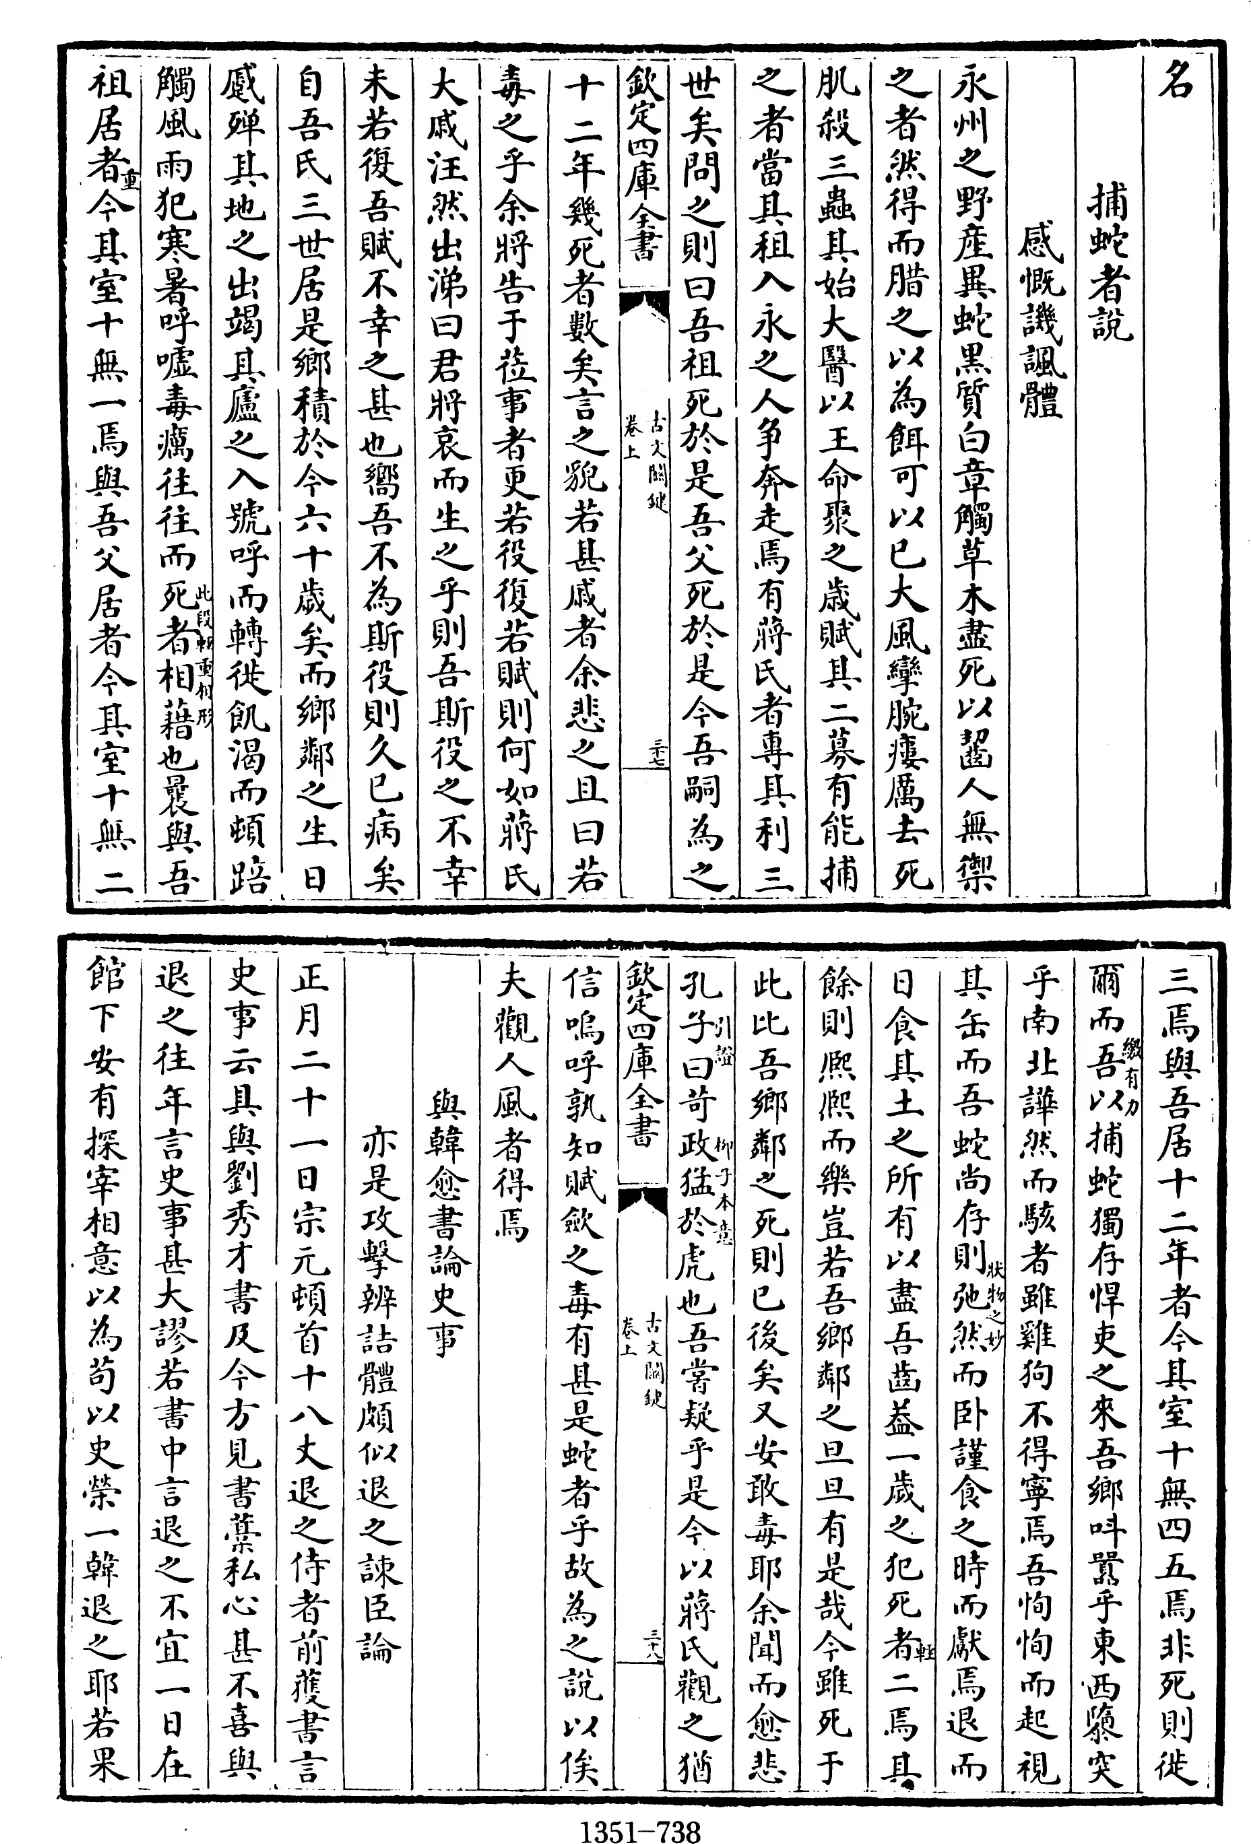 名
捕蛇者說
感慨譏諷體
永州之野產異蛇黑質白章觸草木盡死以齧人無禦
之者然得而腊之以為餌可以已大風攣腕瘻厲去死
肌殺三蟲其始大醫以王命聚之歲賦其二募有能捕
之者當其租入永之人争奔走焉有蔣氏者專其利三
世矣問之則曰吾祖死於是吾父死於是今吾嗣為之
欽定四庫全書
古文關鍵
卷上
三十七
十二年幾死者數矣言之貌若甚戚者余悲之且曰若
毒之乎余將告于莅事者更若役復若賦則何如蔣氏
大戚汪然出涕曰君將哀而生之乎則吾斯役之不幸
未若復吾賦不幸之甚也嚮吾不為斯役則久已病矣
自吾氏三世居是鄉積於今六十歲矣而鄉鄰之生日
蹙殫其地之出竭其廬之入號呼而轉徙飢渴而頓踣
觸風雨犯寒暑呼噓毒癘往往而死者相藉也曩與吾
此段輕重相形
祖居者今其室十無一焉與吾父居者今其室十無二
重
三焉與吾居十二年者今其室十無四五焉非死則徙
爾而吾以捕蛇獨存悍吏之來吾鄉叫囂乎東西隳突
繳有力
乎南北譁然而駭者雖雞狗不得寧焉吾恂恂而起視
其缶而吾蛇尚存則弛然而卧謹食之時而獻焉退而
狀物之妙
日食其土之所有以盡吾齒葢一歲之犯死者二焉其
輕
餘則熈熈而樂豈若吾鄉鄰之旦旦有是哉今雖死于
此比吾鄉鄰之死則已後矣又安敢毒耶余聞而愈悲
孔子曰苛政猛於虎也吾嘗疑乎是今以蔣氏觀之猶
引證
柳子本意
欽定四庫全書
古文關鍵
卷上
三十八
信嗚呼孰知賦歛之毒有甚是蛇者乎故為之說以俟
夫觀人風者得焉
與韓愈書論史事
亦是攻擊辨詰體頗似退之諫臣論
正月二十一日宗元頓首十八丈退之侍者前獲書言
史事云具與劉秀才書及今方見書藁私心甚不喜與
退之往年言史事甚大謬若書中言退之不宜一日在
館下安有探宰相意以為苟以史榮一韓退之耶若果
1351-738